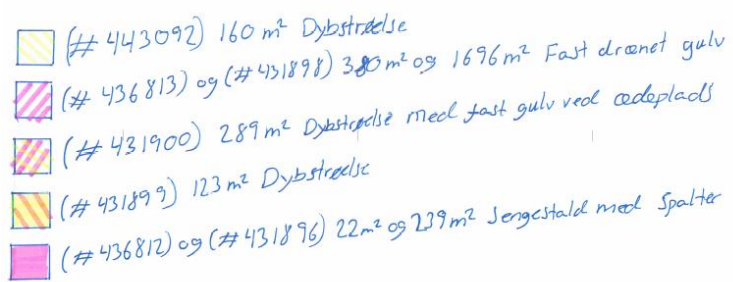 (# 443092) 160 m² Dybstrøelse
(# 436813) og (#431898) 380 m² og 1696 m² Fast drænet gulv
(# 431900) 289 m² Dybstrøelse med fast gulv ved ædeplads
(# 431899) 123 m² Dybstrøelse
(# 436812) og (# 431896) 22 m² og 239 m² Sengestald med Spalter